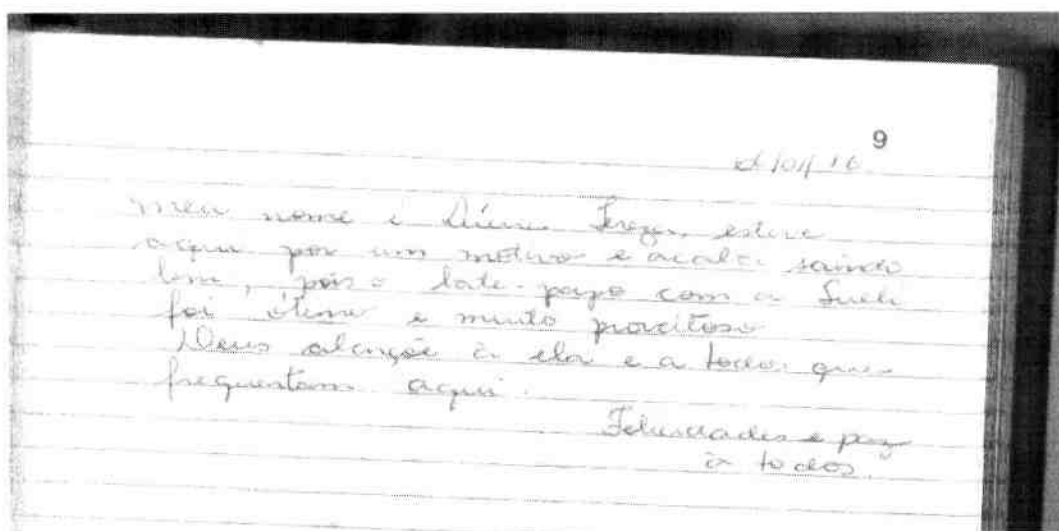 9
meu nome é estive
aqui por um motivo e acabei saindo
bem, pois o bate-papo com a Sueli
foi ótimo e muito proveitoso
Deus abençoe à ela e a todos que
frequentam aqui.
Felicidades e paz
à todos.